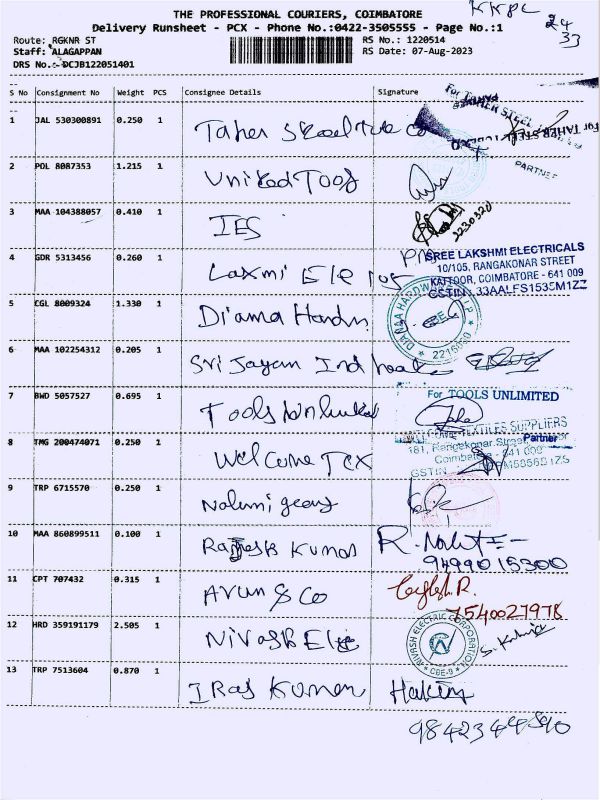 THE PROFESSIONAL COURIERS, COIMBATORE
Delivery Runsheet - PCX - Phone No.:0422-3505555 - Page No.:1
KKPC
24
33
Route: RGKNR ST
RS No.: 1220514
Staff: ALAGAPPAN
RS Date: 07-Aug-2023
DRS No.: DCJB122051401
S No Consignment No Weight PCS Consignee Details Signature
1 JAL 530300891 0.250 1 Taher Steel Tube Co
For TAHER STEEL
PARTNER
2 POL 8087353 1.215 1 United Tools
3 MAA 104388057 0.410 1 IES
2230320
4 GDR 5313456 0.260 1 Laxmi Ele
SREE LAKSHMI ELECTRICALS
10/105, RANGAKONAR STREET
KATTOOR, COIMBATORE - 641 009
GSTIN : 33AALFS1535M1ZZ
5 CGL 8009324 1.330 1 Diama Hardw
6 MAA 102254312 0.205 1 Sri Jayam Ind
7 BWD 5057527 0.695 1 Tools Unlimited
For TOOLS UNLIMITED
Partner
8 TMG 200474071 0.250 1 Welcome Tex
TEXTILES SUPPLIERS
181, Rangakonar Street,
Coimbatore - 641 009
GSTIN
9 TRP 6715570 0.250 1 Nalumi gears
10 MAA 860899511 0.100 1 Ramesh Kumar
R.
9499015300
11 CPT 707432 0.315 1 Arun & Co
7540027978
12 HRD 359191179 2.505 1 Nivash Ele
NIVASH ELECTRIC CORPORATION
CBE-9
13 TRP 7513604 0.870 1 I Raj Kumar
Hakim
9842344590